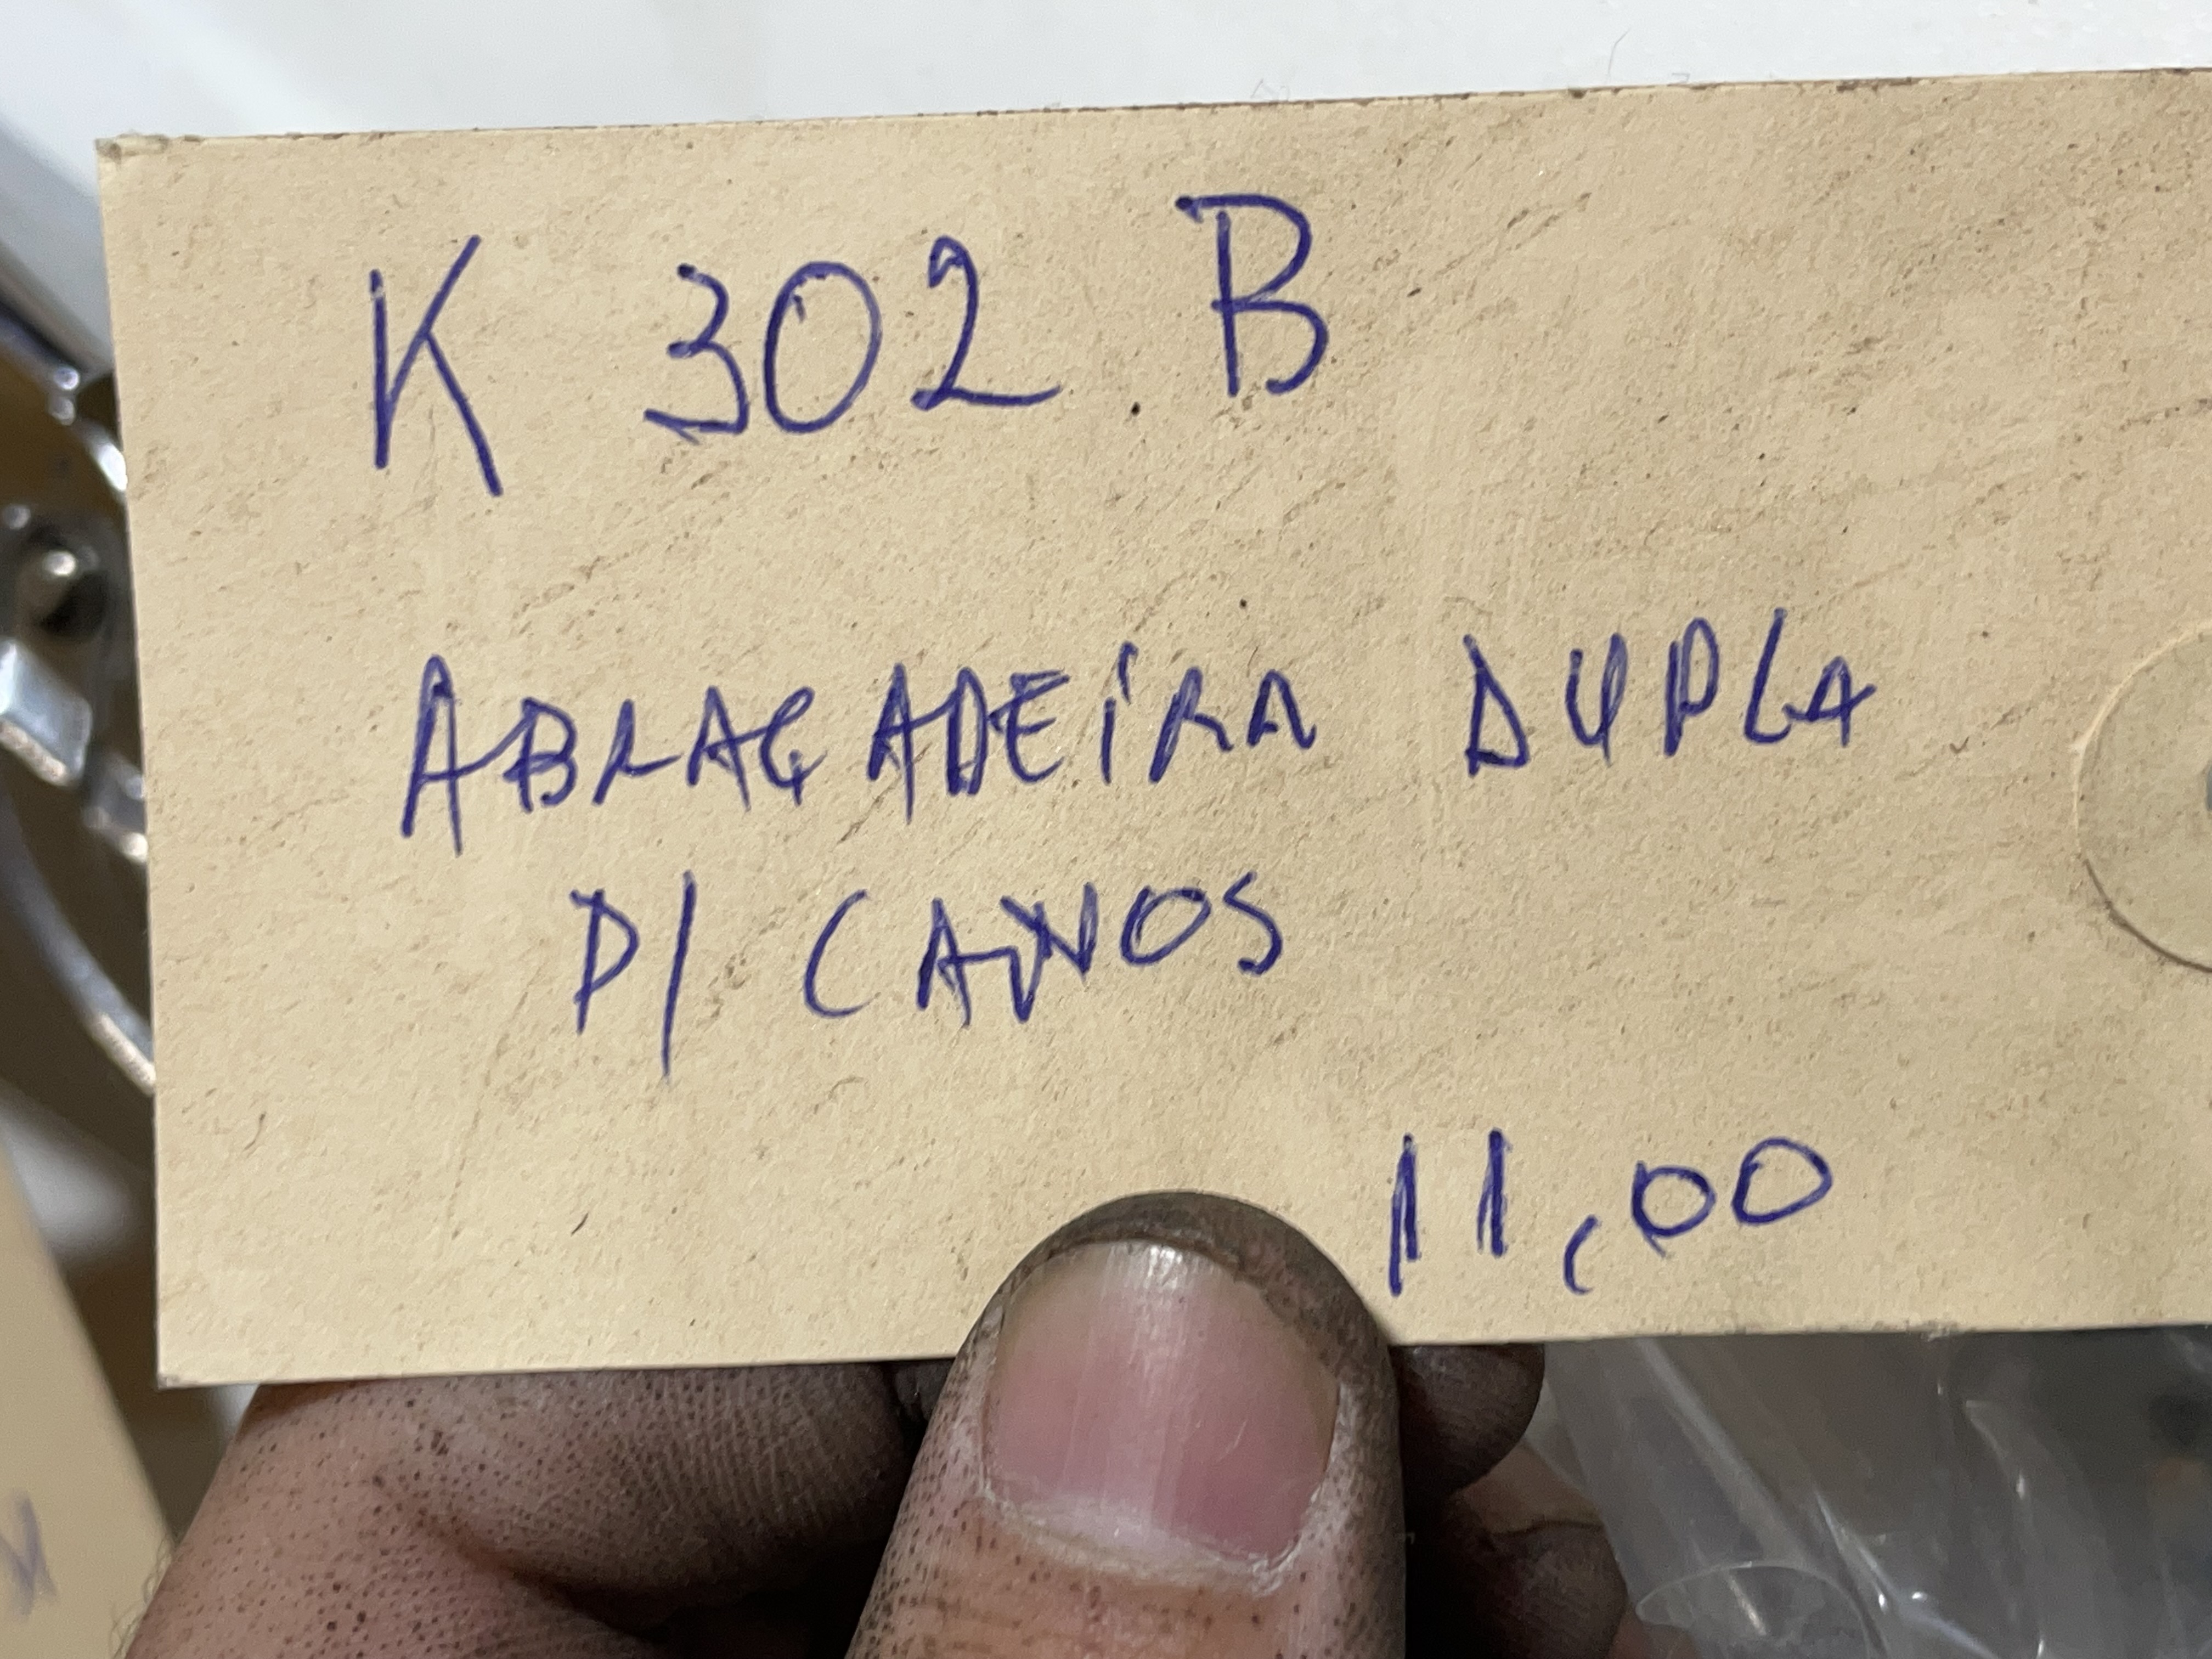 K 302 B
ABRAÇADEIRA DUPLA
P/ CANOS
11,00